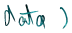 data )